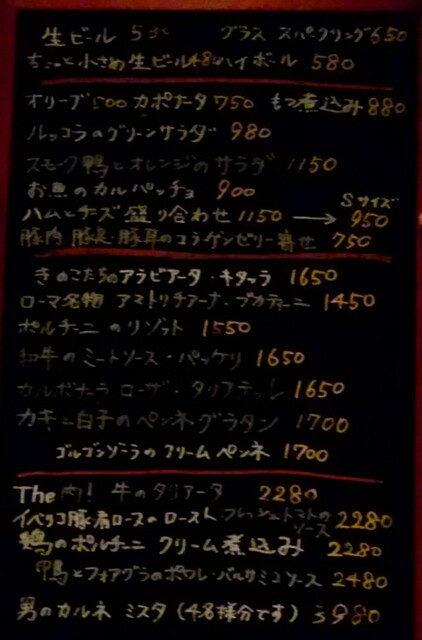 生ビール 530 グラス スパークリング 650
ちょっと小さめ生ビール 480 ハイボール 580
オリーブ 500 カポナータ 750 もつ煮込み 880
ルッコラのグリーンサラダ 980
スモーク鴨とオレンジのサラダ 1150
お魚のカルパッチョ 900
Sサイズ
ハムとチーズ盛り合わせ 1150 → 950
豚肉 豚足 豚耳のコラーゲンゼリー寄せ 750
きのこたちのアラビアータ・キタッラ 1650
ローマ名物 アマトリチアーナ・ブカティーニ 1450
ポルチーニのリゾット 1550
和牛のミートソース・パッケリ 1650
カルボナーラ ローザ・タリアテッレ 1650
カキと白子のペンネグラタン 1700
ゴルゴンゾーラのクリームペンネ 1700
The 肉! 牛のタリアータ 2280
イベリコ豚肩ロースのロースト フレッシュトマトのソース 2280
鶏のポルチーニ クリーム煮込み 2280
鴨とフォアグラのポワレ・バルサミコソース 2480
男のカルネ ミスタ (4名様分です) 3980